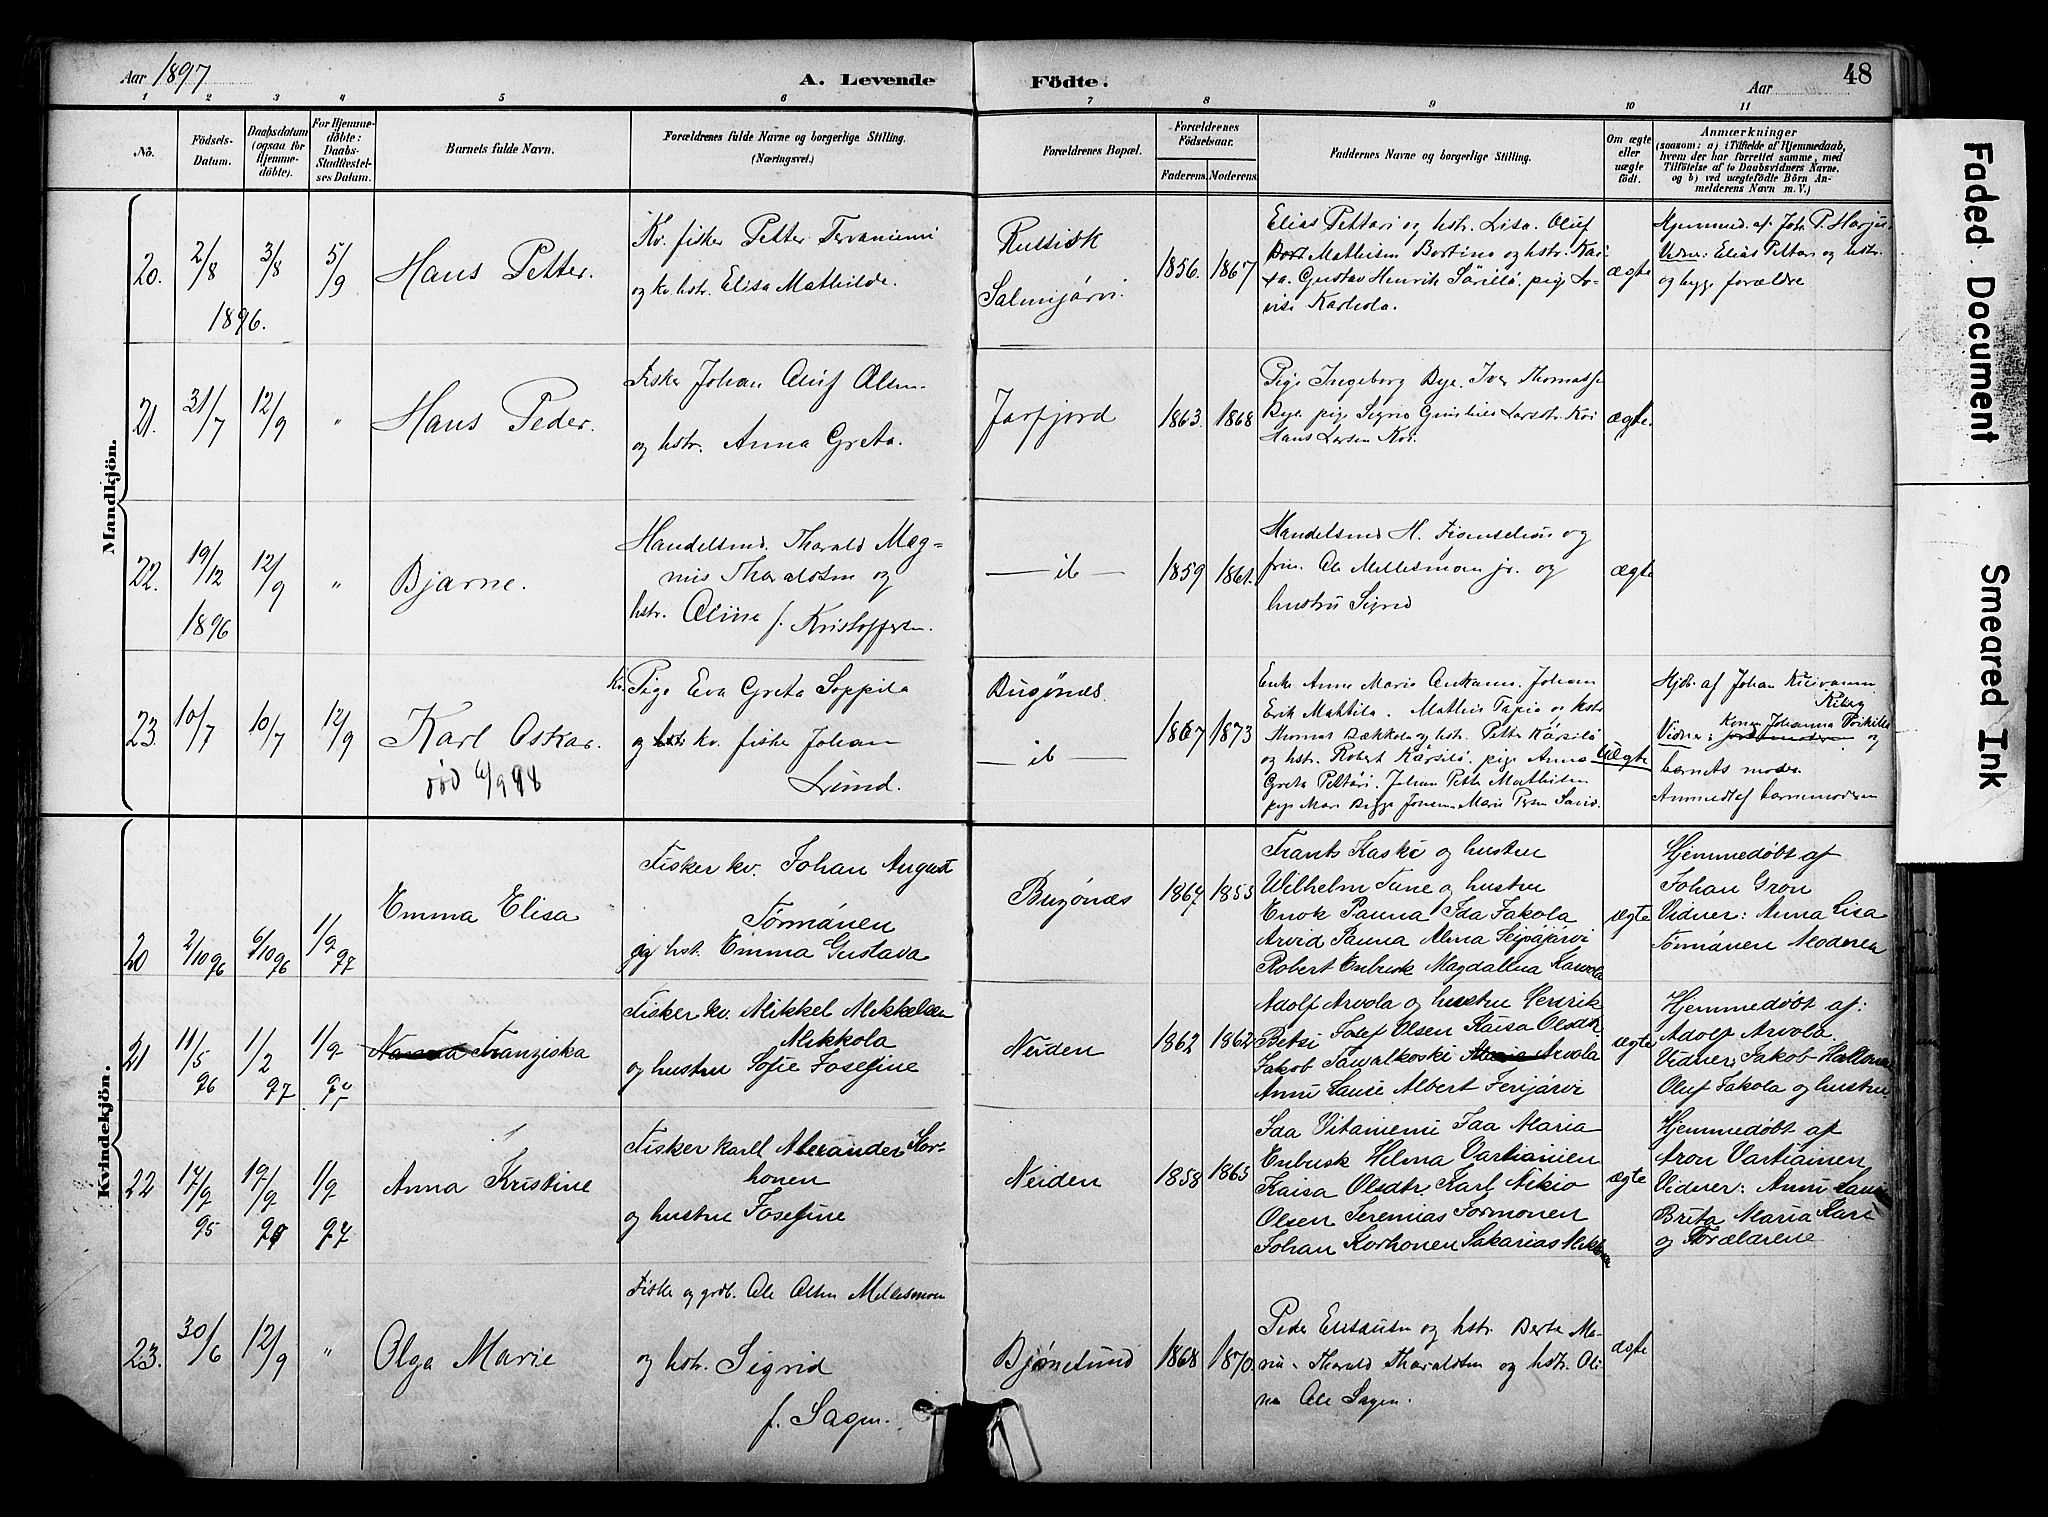 Aar 1897
A. Levende
Födte.
Aar
48
1 2 3 4 5 6 7 8 9 10 11
No.
Födsels-
Datum.
Daabsdatum
(ogsaa for
Hjemme-
döbte).
For Hjemme-
døbte:
Daabs-
Stadfæstel-
ses Datum.
Barnets fulde Navn.
Forældrenes fulde Navne og borgerlige Stilling.
(Næringsvei.)
Forældrenes Bopæl.
Forældrenes
Födselsaar.
Faderens. Moderens.
Faddernes Navne og borgerlige Stilling.
Om ægte
eller
uægte
født.
Anmærkninger
(saasom: a) i Tilfælde af Hjemmedaab,
hvem der har forrettet samme, med
Tilföielse af to Daabsvidners Navne,
og b) ved uægtefödte Börn An-
melderens Navn m. V.)
Mandkjön.
20. 2/8 1896. 3/8 5/9
Hans Petter.
Kv. fisker Petter Tervaniemi
og kv. hstr. Elisa Mathilde.
Russisk
Salmijärvi.
1856. 1867
Elias Pettari og hstr. Lisa. Oluf
Mathisen Bortino og hstr. Kai-
sa. Gustav Henrik pige Lo-
visi Karhola.
ægte
Hjemmed. af Joh. P. Harju
Vidner: Elias Pettari og hstr.
og begge forældre
21. 31/7 12/9 "
Hans Peder.
Fisker Johan Oluf Olsen
og hstr. Anna Greta.
Jarfjord
1863. 1868
Pige Ingeborg Bye. Iver Thomass.
Bye, pige
Hans Larsen
ægte.
22. 19/12 1896 12/9 "
Bjarne.
Handelsmd. Tharald Mag-
nus Tharaldsen og
hstr. Oline f. Kristoffersen.
— ib —
1859 1861.
Handelsmd H. og
frue. Ole Mellesmoen jr. og
hustru Sigrid
ægte
23. 10/7 10/7 12/9
Karl Oskar.
död 6/9 98
Kv. Pige Eva Greta Soppila
og kv. fisker Johan
Lund.
Bugönæs
— ib —
1867 1873
Enke Anna Maria Johan
Erik Mattila. Mathis Tapio og hstr.
Thomas og hstr. Petter
og hstr. Robert pige Anna
Greta Pettäri. Johan Petter Mathisen
uægte
Hjdb. af Johan
Kiberg
Vidner: Kone Johanna og
barnets moder.
Anmeldt af barnemoderen
Kvindekjön.
20 2/10 96 6/10 96 1/2 97
Emma Elisa
Fisker kv. Johan August
Törmänen
og hst. Emma Gustava
Bugönæs
1867 1853
Frants Kaski og hustru
Wilhelm Tune og hustru
Enok Panna Ida Jakola
Arvid Panna Alma Seipäjärvi
Robert Enbusk Magdalena
ægte
Hjemmedøbt af
Johan Gron
Vidner: Anna Lisa
Törmänen Moderen
21 11/5 96 1/2 97 1/2
Franziska
Fisker kv. Mikkel Mikkelsen
Mikkola
og hustru Sofie Josefine
Neiden
1862 1862
Adolf Arvola og hustru Henrik
Betsi Josef Olsen Kaisa Olsdtr
Jakob Tawalkoski Maria Arvola
Anni Lausi Albert Ferijärvi
ægte
Hjemmedøbt af:
Adolf Arvola.
Vidner: Jakob
Oluf Jakola og hustru
22 17/2 95 1/2 97
Anna Kristine
Fisker karll Alexander Kor-
honen
og hustru Josefine
Neiden
1858 1865
Ida Vitaniemi Ida Maria
Enbusk Helma Vartiainen
Kaisa Olsdtr. Karl Nikio
Olsen Jeremias Tormonen
Johan Korhonen Sakarias
ægte
Hjemmedøbt af
Aron Vartiainen
Vidner: Anni
Brita Maria Kari
og Forældrene
23. 30/6 12/9 "
Olga Marie
Fisker og grdb. Ole Olsen Mellesmoen
og hstr. Sigrid
f. Sagen.
Bjørnesund
1868 1870.
Peder og hstr. Berte Ma-
rie. Tharald Tharaldsen og hstr. Oli-
ne Ole Sagen.
ægte
Faded Document
Smeared Ink